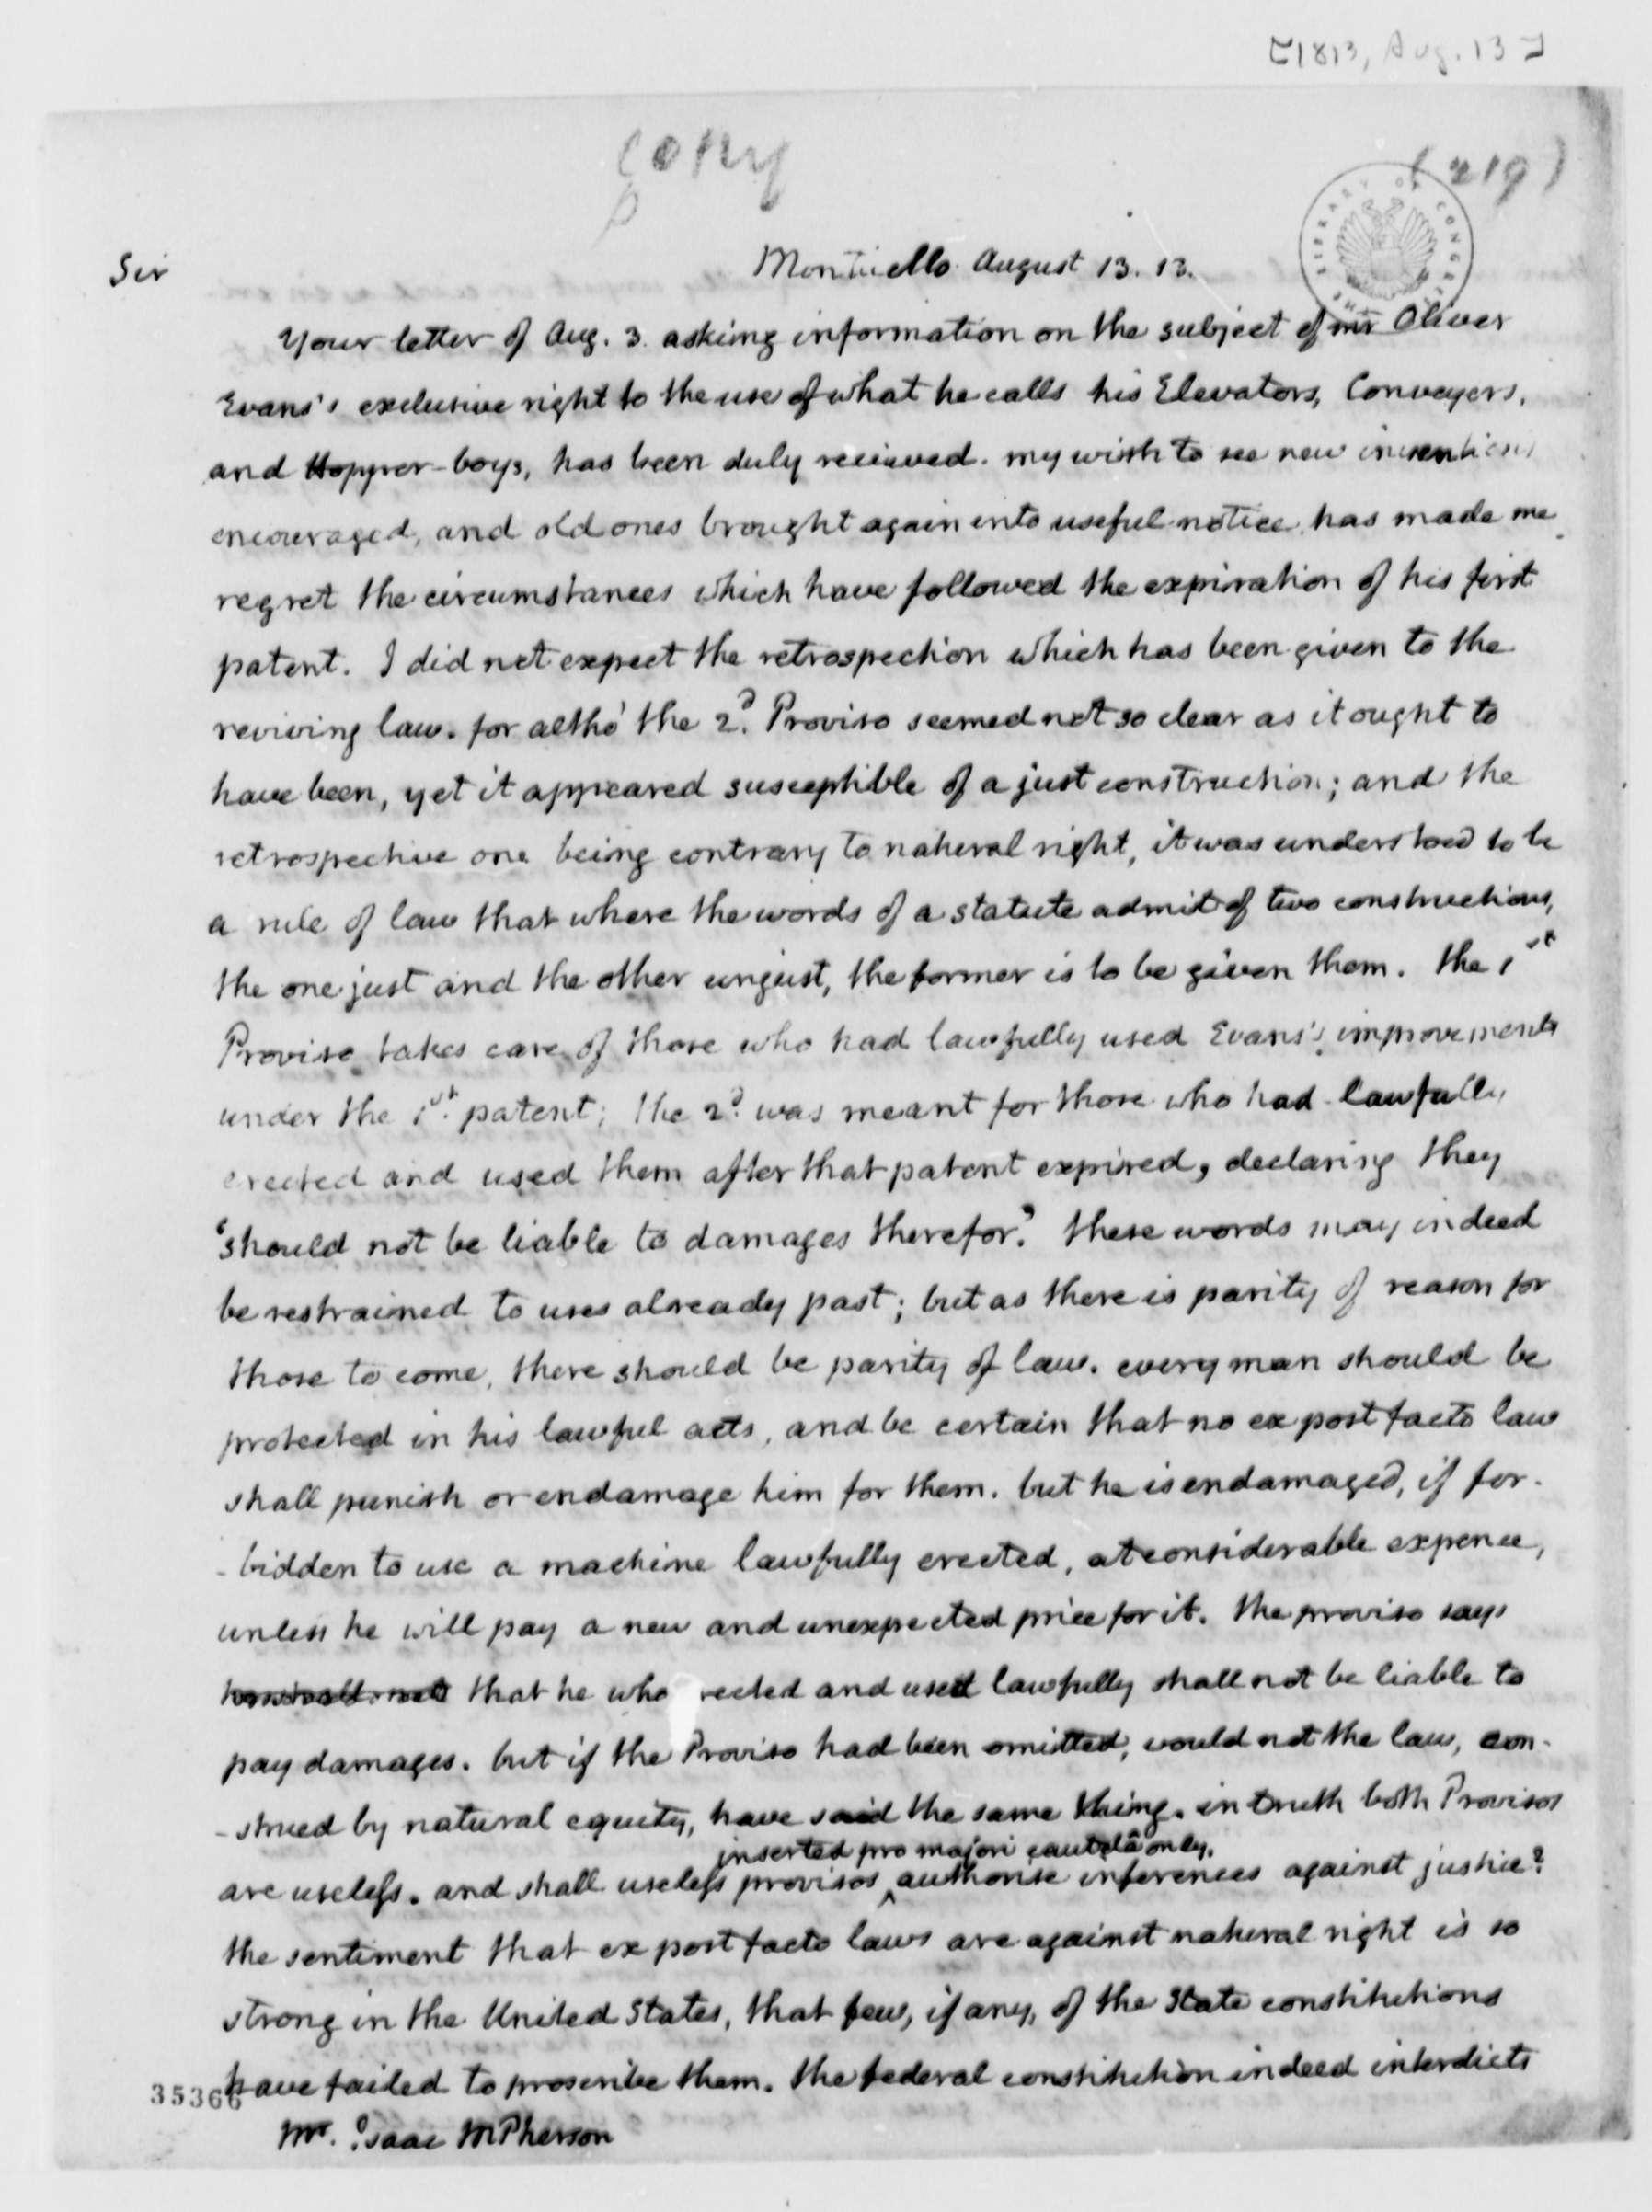 [1813, Aug. 13]
copy
(219)
LIBRARY OF CONGRESS
Sir
Monticello August 13. 13.
Your letter of Aug. 3. asking information on the subject of mr Oliver
Evans's exclusive right to the use of what he calls his Elevators, Conveyers,
and Hopper-boys, has been duly recieved. my wish to see new inventions
encouraged, and old ones brought again into useful notice, has made me
regret the circumstances which have followed the expiration of his first
patent. I did not expect the retrospection which has been given to the
reviving law. for altho' the 2d. Proviso seemed not so clear as it ought to
have been, yet it appeared susceptible of a just construction; and the
retrospective one being contrary to natural right, it was understood to be
a rule of law that where the words of a statute admit of two constructions,
the one just and the other unjust, the former is to be given them. the 1st
Proviso takes care of those who had lawfully used Evans's improvements
under the 1st. patent; the 2d. was meant for those who had lawfully
erected and used them after that patent expired, declaring they
'should not be liable to damages therefor.' these words may indeed
be restrained to uses already past; but as there is parity of reason for
those to come, there should be parity of law. every man should be
protected in his lawful acts, and be certain that no ex post facto law
shall punish or endamage him for them. but he is endamaged, if for-
-bidden to use a machine lawfully erected, at considerable expence,
unless he will pay a new and unexpected price for it. the proviso says
that he who rected and used lawfully shall not be liable to
pay damages. but if the Proviso had been omitted, would not the law, con-
-strued by natural equity, have said the same thing. in truth both Provisos
inserted pro majori cautelâ only.
are useless. and shall useless provisos ^ authorise inferences against justice?
the sentiment that ex post facto laws are against natural right is so
strong in the United States, that few, if any, of the State constitutions
have failed to proscribe them. the federal constitution indeed interdicts
35366
Mr. Isaac McPherson